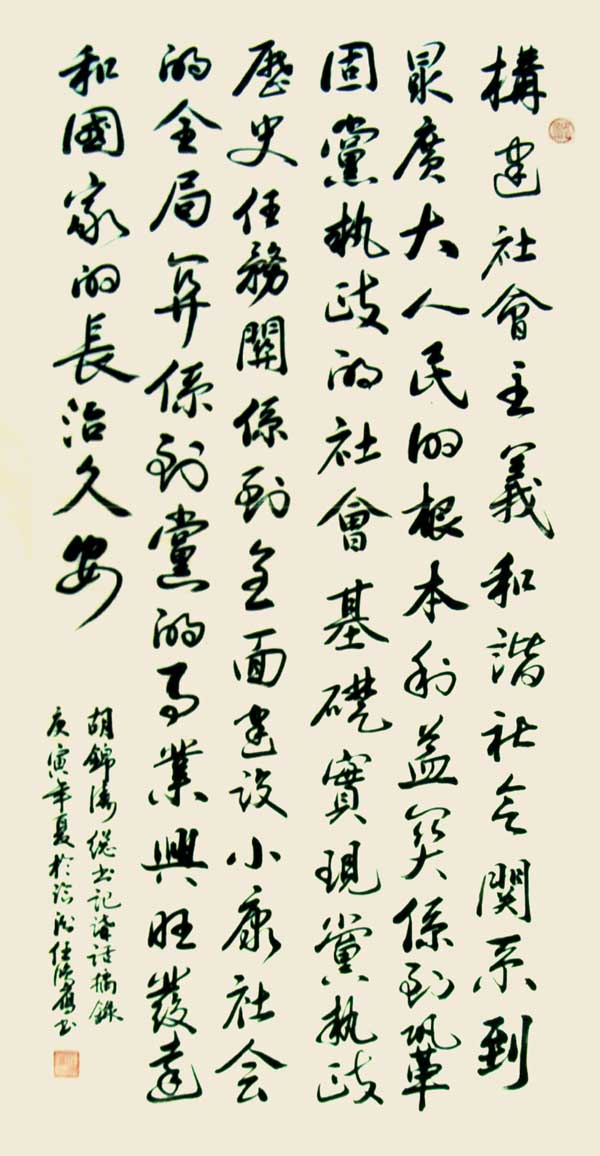 構建社會主義和諧社会関系到
最廣大人民的根本利益关係到鞏
固黨執政的社會基礎實現黨執政
歷史任務關係到全面建設小康社会
的全局关係到黨的事業興旺發達
和國家的長治久安
胡錦濤總书記講話摘錄
庚寅年夏於任书